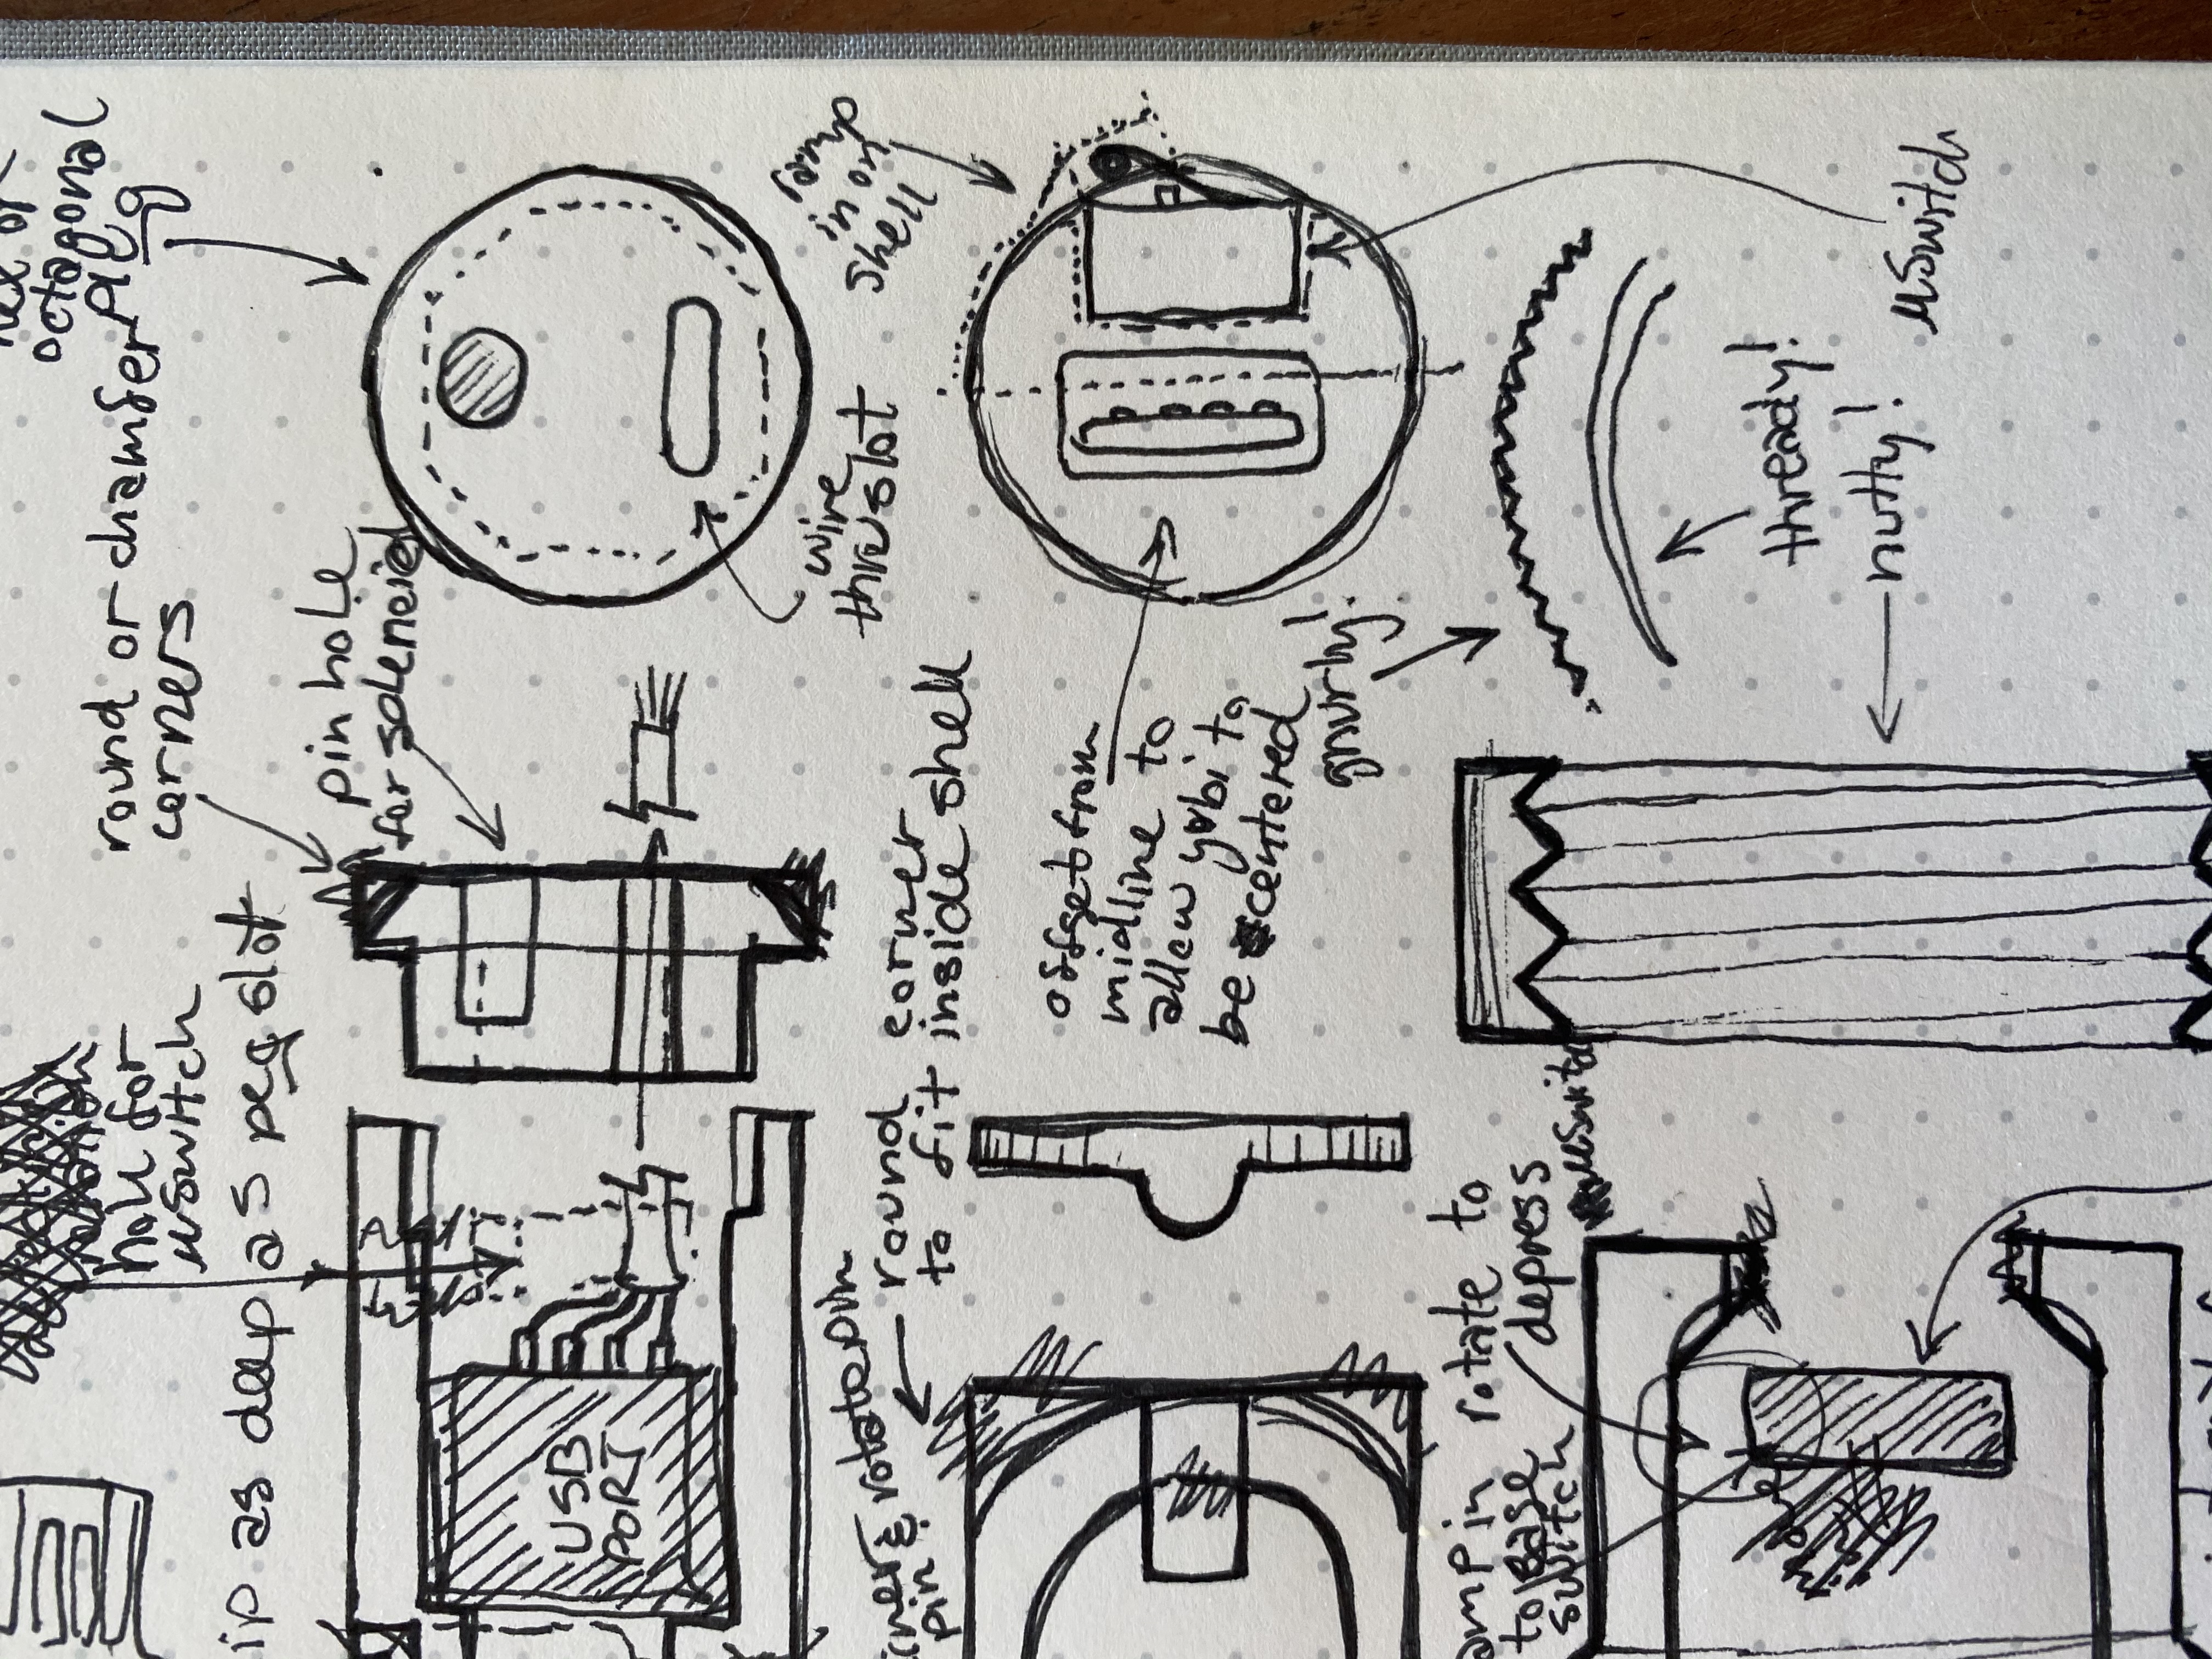 rotation
hole for
µSwitch
hex or
octagonal
plug
round or chamfer
corners
ip as deep as peg slot
pin hole
for solenoid
USB
PORT
wire
thru slot
ramp
in on
shell
rner & rotate pin
pin
round corner
to fit inside shell
offset from
midline to
allow yubi to
be centered
gnurly!
amp in
to ease
switch
rotate to
depress
µSwitch
thready!
nutty!
µSwitch